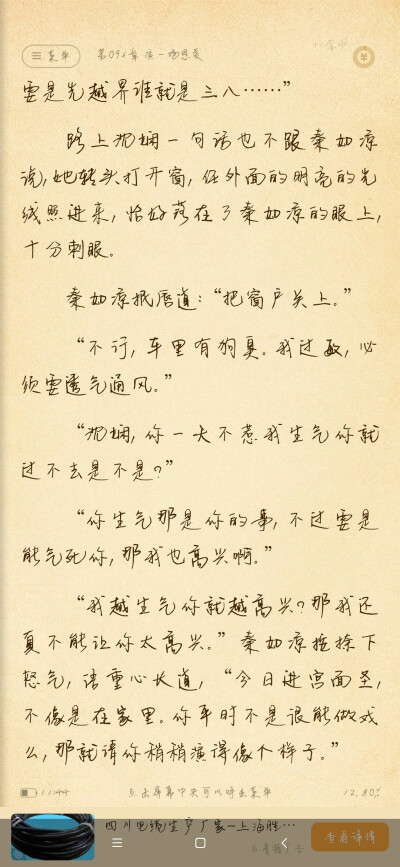 菜单
第091章 演一场恩爱
要是先越界谁就是三八……”
路上沈娴一句话也不跟秦如凉
说,她转头打开窗,任外面的明亮的光
线照进来,恰好落在了秦如凉的眼上,
十分刺眼。
秦如凉抿唇道:“把窗户关上。”
“不行,车里有狗臭。我过敏,必
须要透气通风。”
“沈娴,你一天不惹我生气你就
过不去是不是?”
“你生气那是你的事,不过要是
能气死你,那我也高兴啊。”
“我越生气你就越高兴?那我还
真不能让你太高兴。”秦如凉按捺下
怒气,语重心长道,“今日进宫面圣,
不像是在家里。你平时不是很能做戏
么,那就请你稍稍演得像个样子。”
11:44
点击屏幕中央可以呼出菜单
12.80%
四川电缆生产厂家-上海胜…
查看详情